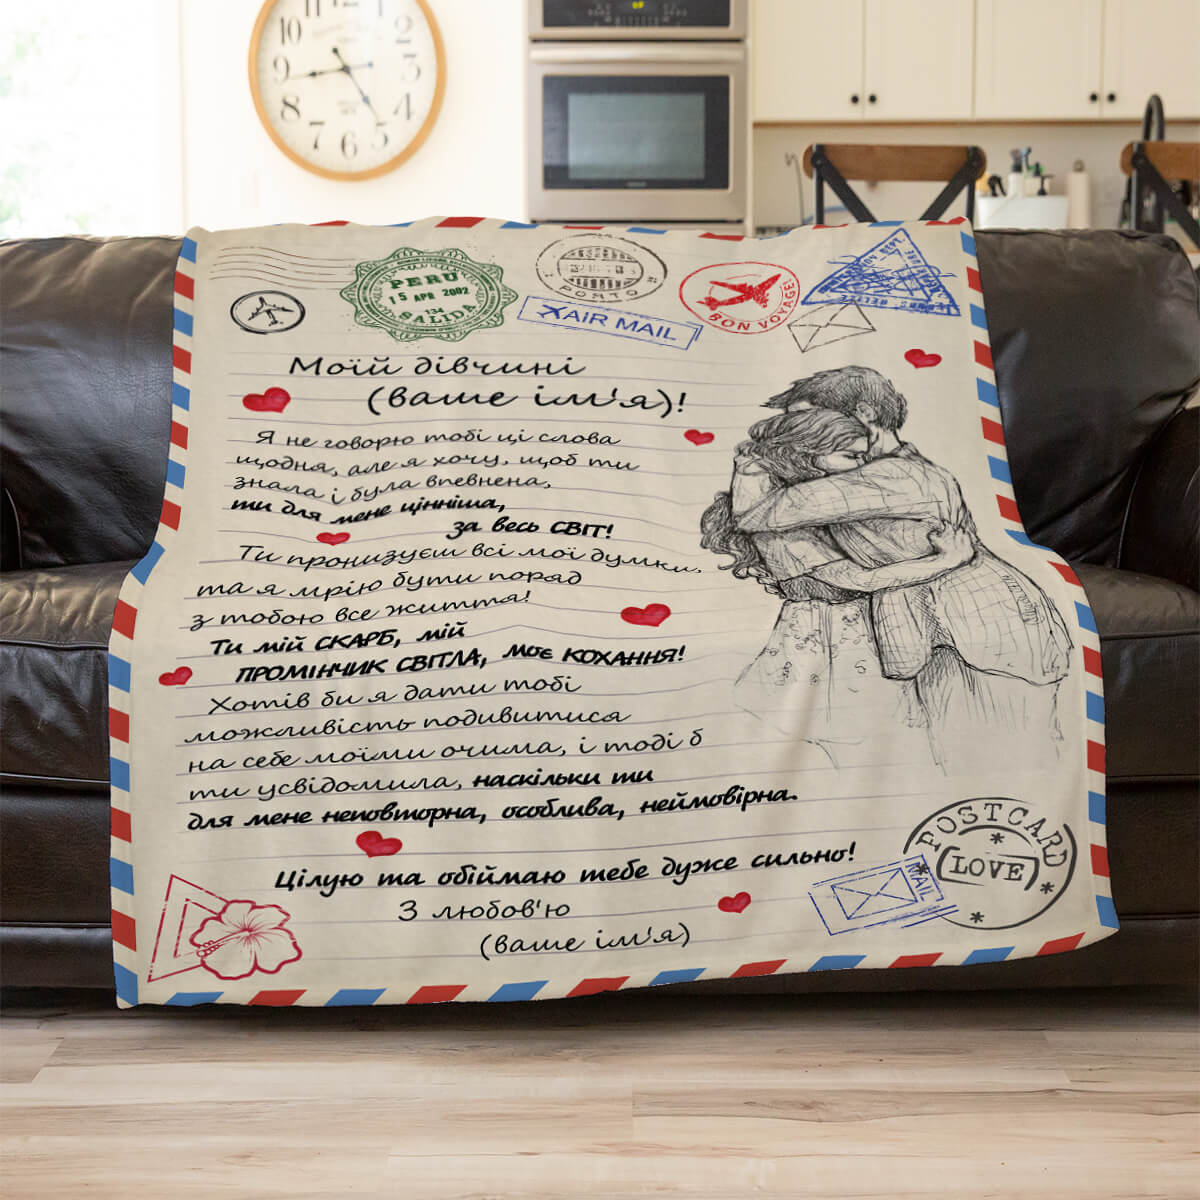 10
2
9
3
8
4
7
6
5
PERU
15 APR 2002
134
SALIDA
PORTO
AIR MAIL
BON VOYAGE!
Моїй дівчині
(ваше ім'я)!
Я не говорю тобі ці слова
щодня, але я хочу, щоб ти
знала і була впевнена,
ти для мене цінніша,
за весь СВІТ!
Ти пронизуєш всі мої думки,
та я мрію бути поряд
з тобою все життя!
Ти мій СКАРБ, мій
ПРОМІНЧИК СВІТЛА, моє КОХАННЯ!
Хотів би я дати тобі
можливість подивитися
на себе моїми очима, і тоді б
ти усвідомила, наскільки ти
для мене неповторна, особлива, неймовірна.
Цілую та обіймаю тебе дуже сильно!
З любов'ю
(ваше ім'я)
POSTCARD
LOVE
MAIL